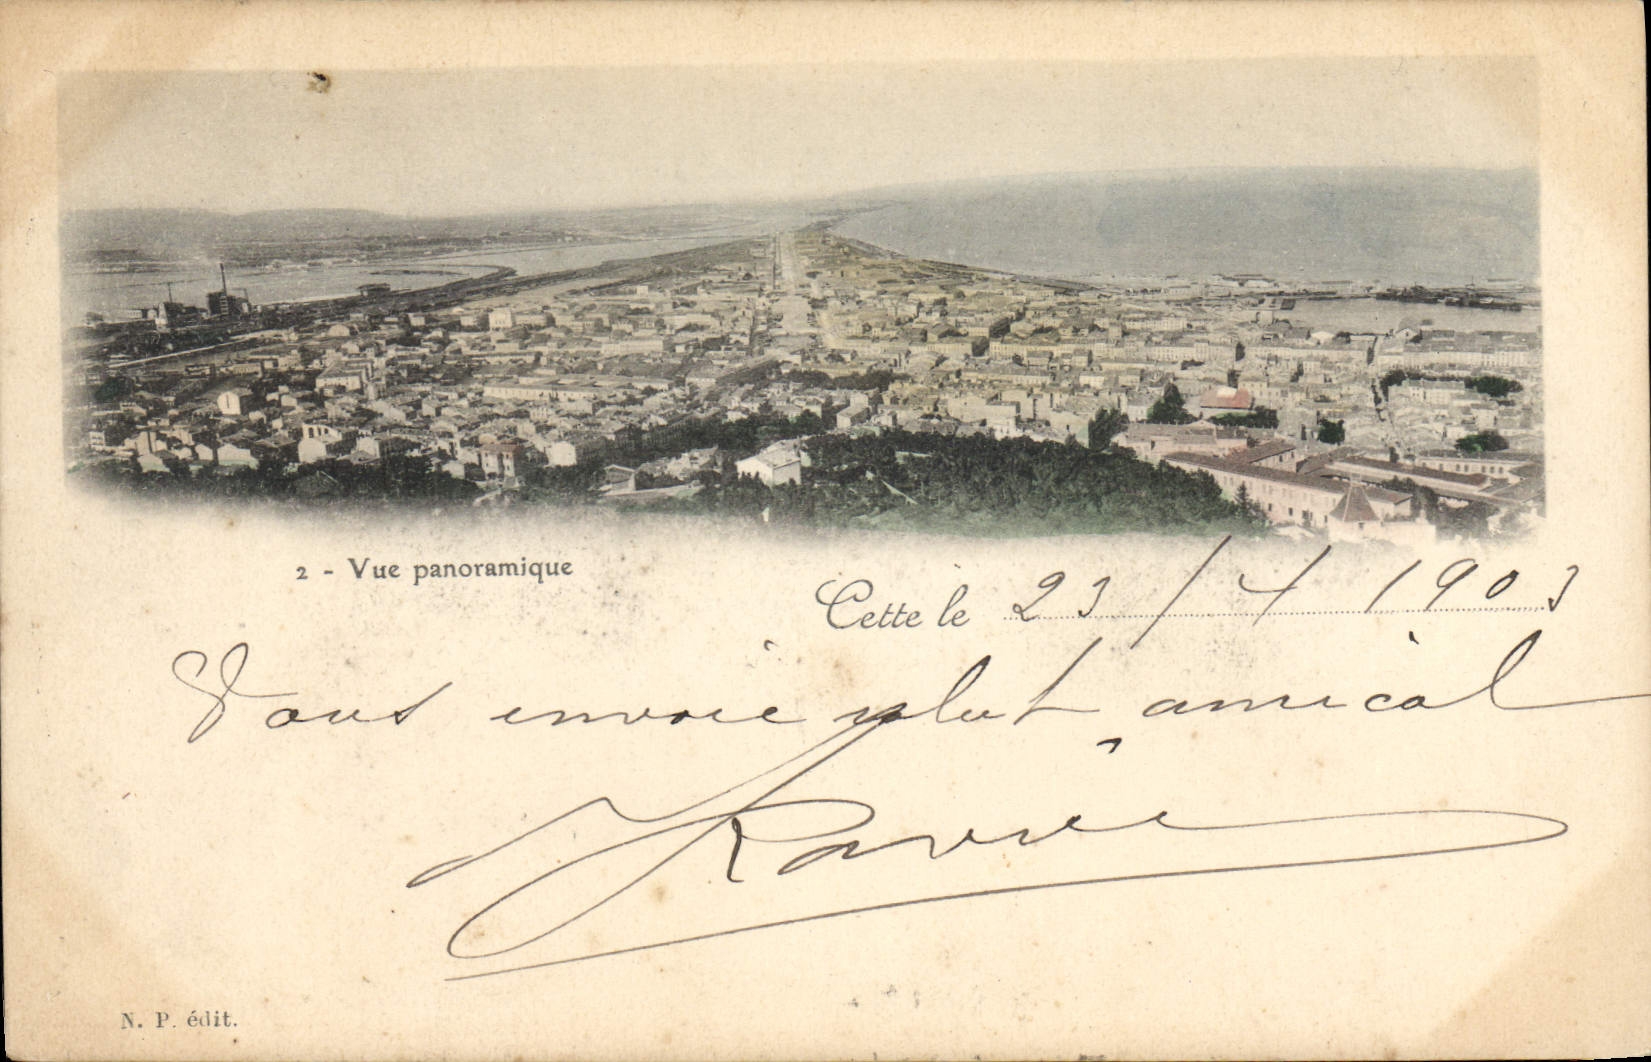 2 - Vue panoramique
Cette le 23/4 1903
Vous envoie salut amical
N. P. édit.